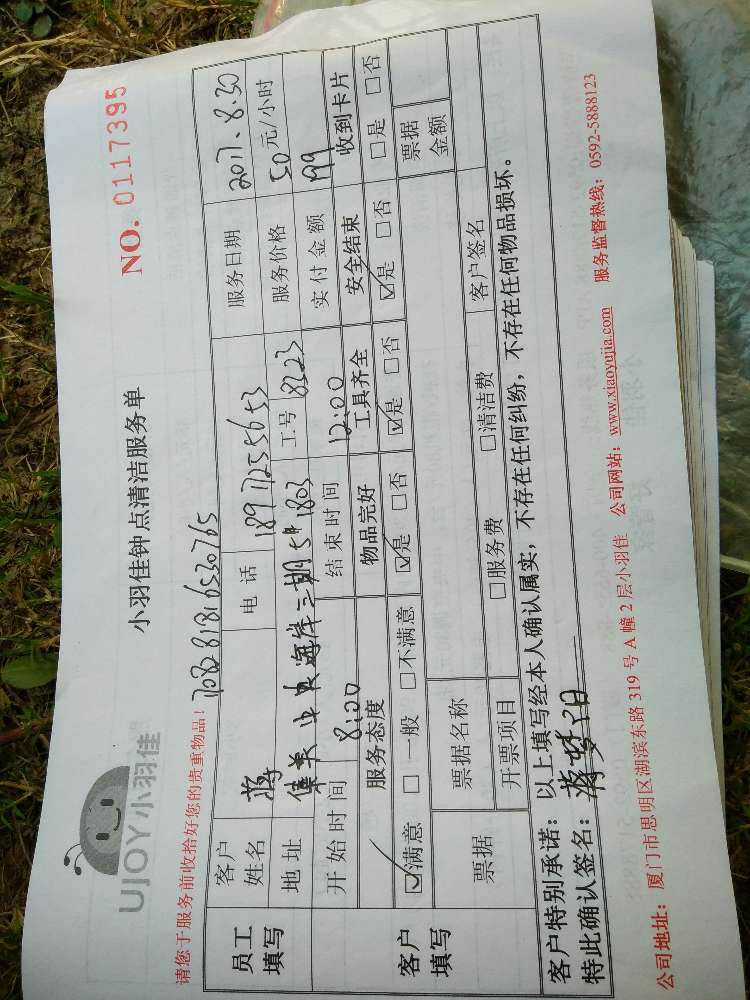 UJOY小羽佳
小羽佳钟点清洁服务单
NO. 0117395
请您于服务前收拾好您的贵重物品！
员工填写 客户姓名 蒋 电话 18911255653 服务日期 2017.8.30
地址 集美中央海岸三期 1803 工号 8323 服务价格 50元/小时
开始时间 8:00 结束时间 12:00 实付金额 199
客户填写 服务态度 物品完好 工具齐全 安全结束 收到卡片
☑满意 □一般 □不满意 ☑是 □否 ☑是 □否 ☑是 □否 □是 □否
票据 票据名称 票据金额
开票项目 □服务费 □清洁费 客户签名
客户特别承诺：以上填写经本人确认属实，不存在任何纠纷，不存在任何物品损坏。
特此确认签名：蒋
公司地址：厦门市思明区湖滨东路319号A幢2层小羽佳 公司网站：www.xiaoyujia.com 服务监督热线：0592-5888123